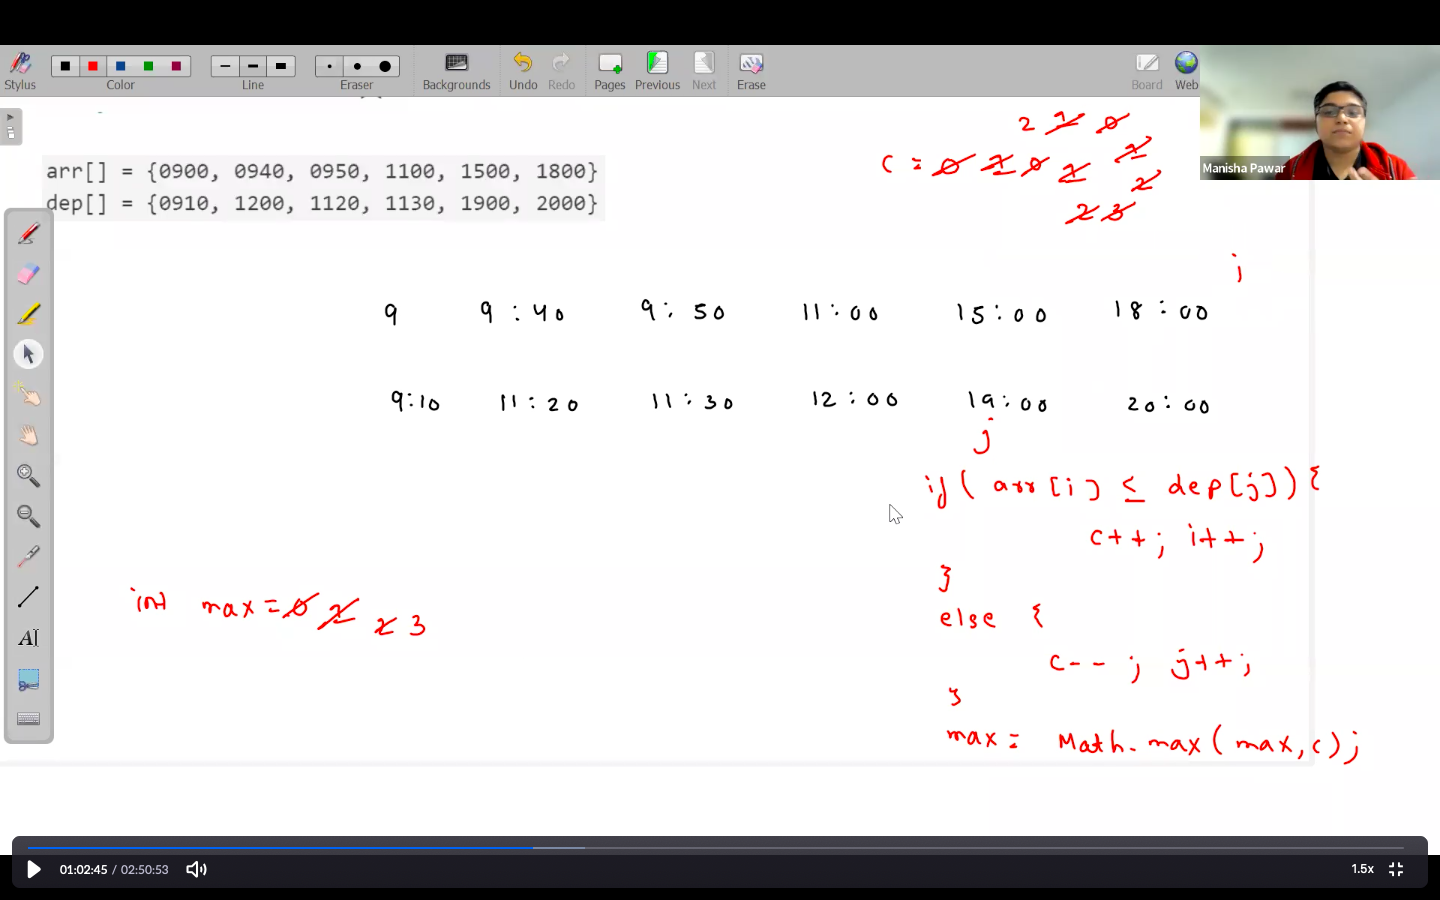 Stylus
Color
Line
Eraser
Backgrounds
Undo
Redo
Pages
Previous
Next
Erase
Board
Web
Manisha Pawar
2 1 0
c = 0 1 0 1
1
2
2 3
arr[] = {0900, 0940, 0950, 1100, 1500, 1800}
dep[] = {0910, 1200, 1120, 1130, 1900, 2000}
i
9 9:40 9:50 11:00 15:00 18:00
9:10 11:20 11:30 12:00 19:00 20:00
j
if( arr[i] ≤ dep[j]){
c++; i++;
}
else {
c--; j++;
}
max = Math.max(max,c);
int max = 0 1 2 3
AI
01:02:45 / 02:50:53
1.5x